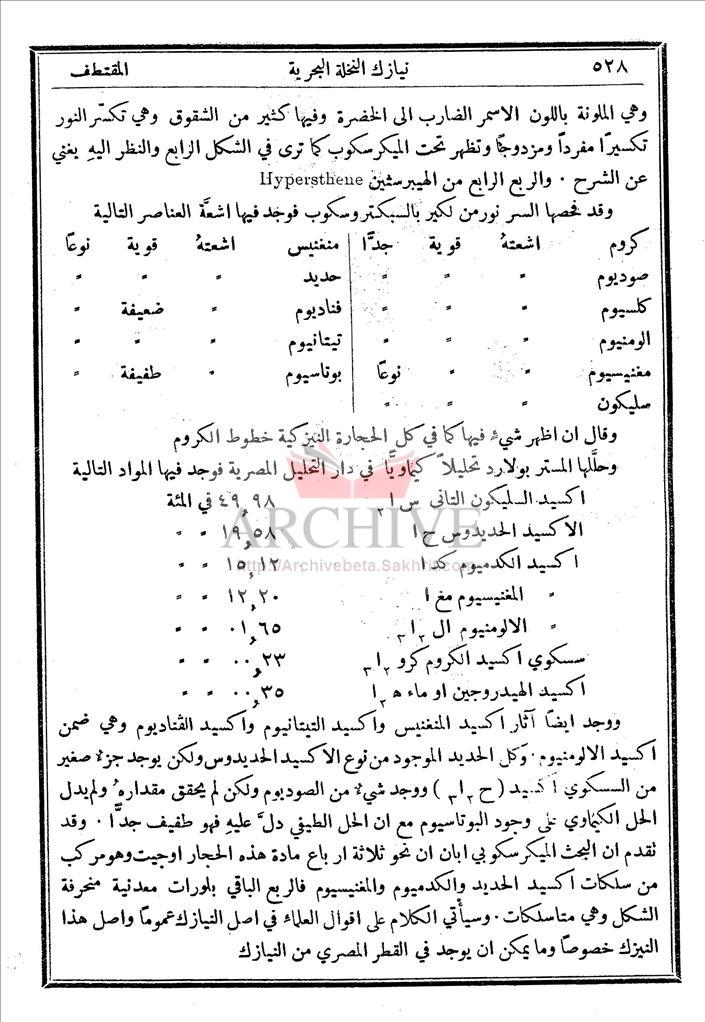 ٥٢٨ نيازك النخلة البحرية المقتطف
وهي الملونة باللون الاسمر الضارب الى الخضرة وفيها كثير من الشقوق وهي تكسّر النور
تكسيرًا مفردًا ومزدوجًا وتظهر تحت الميكرسكوب كما ترى في الشكل الرابع والنظر اليهِ يغني
عن الشرح ٠ والربع الرابع من الهيبرسثين Hypersthene
وقد فحصها السر نورمن لكير بالسبكتروسكوب فوجد فيها اشعَّة العناصر التالية
كروم اشعتهُ قوية جدًّا منغنيس اشعتهُ قوية نوعًا
صوديوم " " " حديد " " "
كلسيوم " " " فناديوم " ضعيفة "
الومنيوم " " " تيتانيوم " " "
مغنيسيوم " " نوعًا بوتاسيوم " طفيفة "
سليكون " " "
وقال ان اظهر شيءٍ فيها كما في كل الحجارة النيزكية خطوط الكروم
وحلَّلها المستر بولارد تحليلاً كيماويًّا في دار التحليل المصرية فوجد فيها المواد التالية
اكسيد السليكون الثاني س ا٢ ٤٩,٩٨ في المئة
الاكسيد الحديدوس ح ا ١٩,٥٨ " "
اكسيد الكدميوم كد ا ١٥,١٢ " "
" المغنيسيوم مغ ا ١٢,٢٠ " "
" الالومنيوم ال٢ ا٣ ٠١,٦٥ " "
سسكوي اكسيد الكروم كرو٢ ا٣ ٠٠,٢٣ " "
اكسيد الهيدروجين او ماء ه٢ ا ٠٠,٣٥ " "
ووجد ايضًا آثار اكسيد المنغنيس واكسيد التيتانيوم واكسيد الڤناديوم وهي ضمن
اكسيد الالومنيوم ٠ وكل الحديد الموجود من نوع الاكسيد الحديدوس ولكن يوجد جزء صغير
من السسكوي اكسيد ( ح٢ ا٣ ) ووجد شيءٌ من الصوديوم ولكن لم يحقق مقداره ُ ولم يدل
الحل الكيماوي على وجود البوتاسيوم مع ان الحل الطيفي دلَّ عليهِ فهو طفيف جدًّا ٠ وقد
تقدم ان البحث الميكرسكوبي ابان ان نحو ثلاثة ارباع مادة هذه الحجار اوجيت وهو مركب
من سلكات اكسيد الحديد والكدميوم والمغنيسيوم فالربع الباقي بلورات معدنية منحرفة
الشكل وهي متاسلكات ٠ وسيأتي الكلام على اقوال العلماء في اصل النيازك عمومًا واصل هذا
النيزك خصوصًا وما يمكن ان يوجد في القطر المصري من النيازك
ARCHIVE
http://Archivebeta.Sakhrit.com